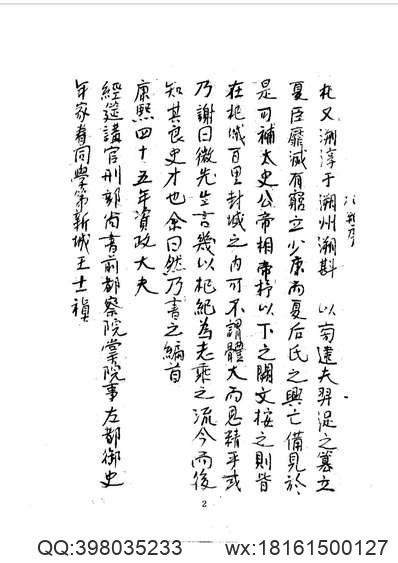 杞又溯淳于溯州溯斟 以南遠夫羿浞之篡立
夏臣靡滅有窮立少康而夏后氏之興亡備見於
是可補太史公帝相帝杼以下之闕文按之則皆
在杞城百里封域之内可不謂體大而思精乎或
乃謝曰微先生言幾以杞紀為志乘之流今而後
知其良史才也余曰然乃書之編首
康熙四十五年資政大夫
經筵講官刑部尚書前都察院掌院事左都御史
年家眷同學弟新城王士禛
2
QQ:398035233 wx:18161500127